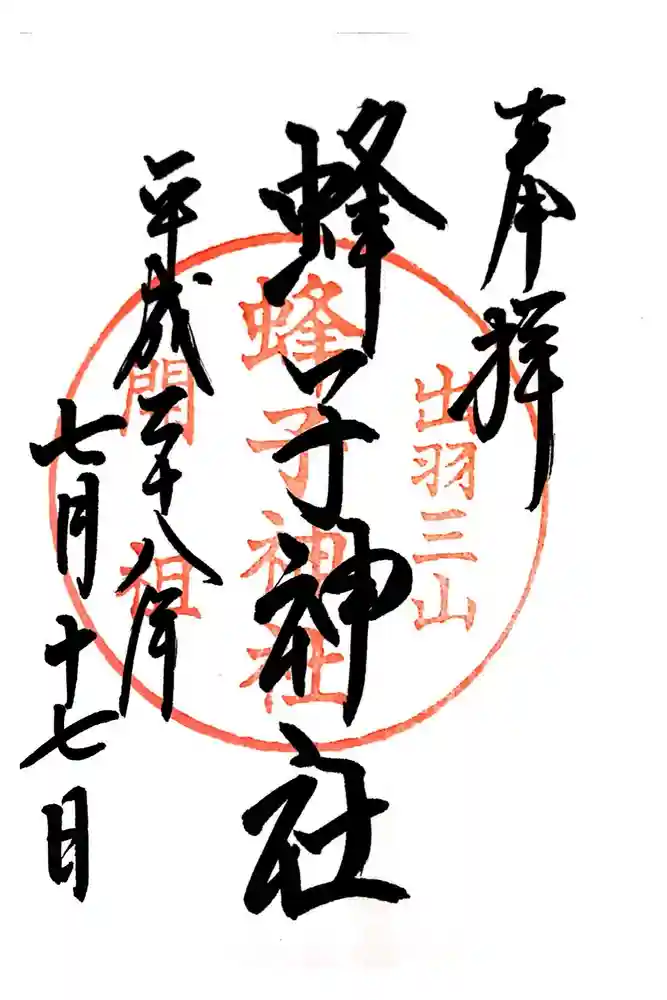 奉拝
出羽三山
蜂子神社
蜂子神社
開祖
平成二十八年
七月十七日